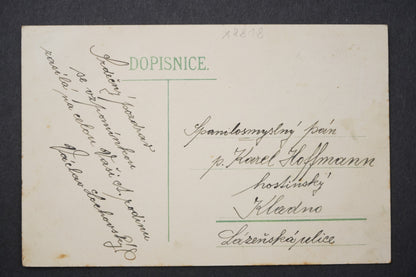 12818
DOPISNICE.
Srdečný pozdrav
se vzpomínkou
zasílá na celou Vaši ct. rodinu
Václav
Spanilosmyslný pán
p. Karel Hoffmann
hostinský
Kladno
Lázeňská ulice